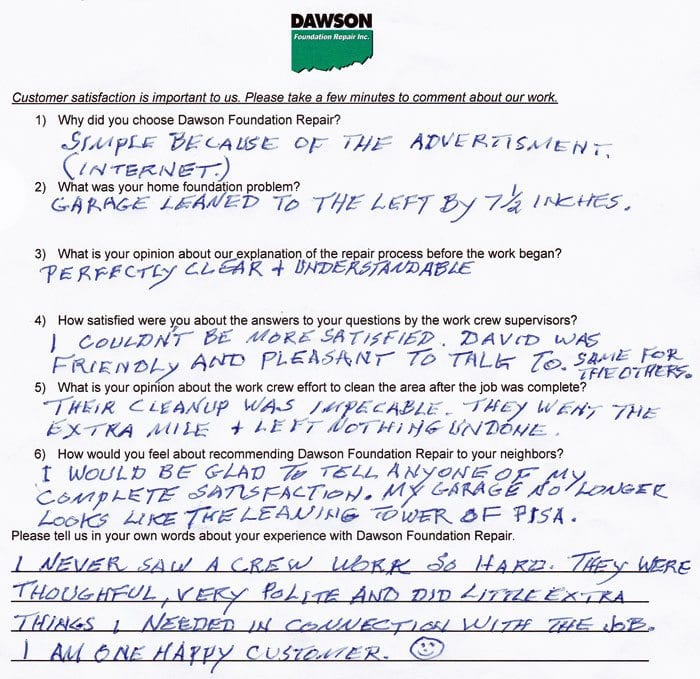 DAWSON
Foundation Repair Inc.
Customer satisfaction is important to us. Please take a few minutes to comment about our work.
1) Why did you choose Dawson Foundation Repair?
SIMPLE BECAUSE OF THE ADVERTISMENT.
(INTERNET.)
2) What was your home foundation problem?
GARAGE LEANED TO THE LEFT BY 7½ INCHES.
3) What is your opinion about our explanation of the repair process before the work began?
PERFECTLY CLEAR + UNDERSTANDABLE
4) How satisfied were you about the answers to your questions by the work crew supervisors?
I COULDN'T BE MORE SATISFIED. DAVID WAS
FRIENDLY AND PLEASANT TO TALK TO. SAME FOR
THE OTHERS.
5) What is your opinion about the work crew effort to clean the area after the job was complete?
THEIR CLEANUP WAS IMPECABLE. THEY WENT THE
EXTRA MILE + LEFT NOTHING UNDONE.
6) How would you feel about recommending Dawson Foundation Repair to your neighbors?
I WOULD BE GLAD TO TELL ANYONE OF MY
COMPLETE SATISFACTION. MY GARAGE NO LONGER
LOOKS LIKE THE LEANING TOWER OF PISA.
Please tell us in your own words about your experience with Dawson Foundation Repair.
I NEVER SAW A CREW WORK SO HARD. THEY WERE
THOUGHFUL, VERY POLITE AND DID LITTLE EXTRA
THINGS I NEEDED IN CONNECTION WITH THE JOB.
I AM ONE HAPPY CUSTOMER.